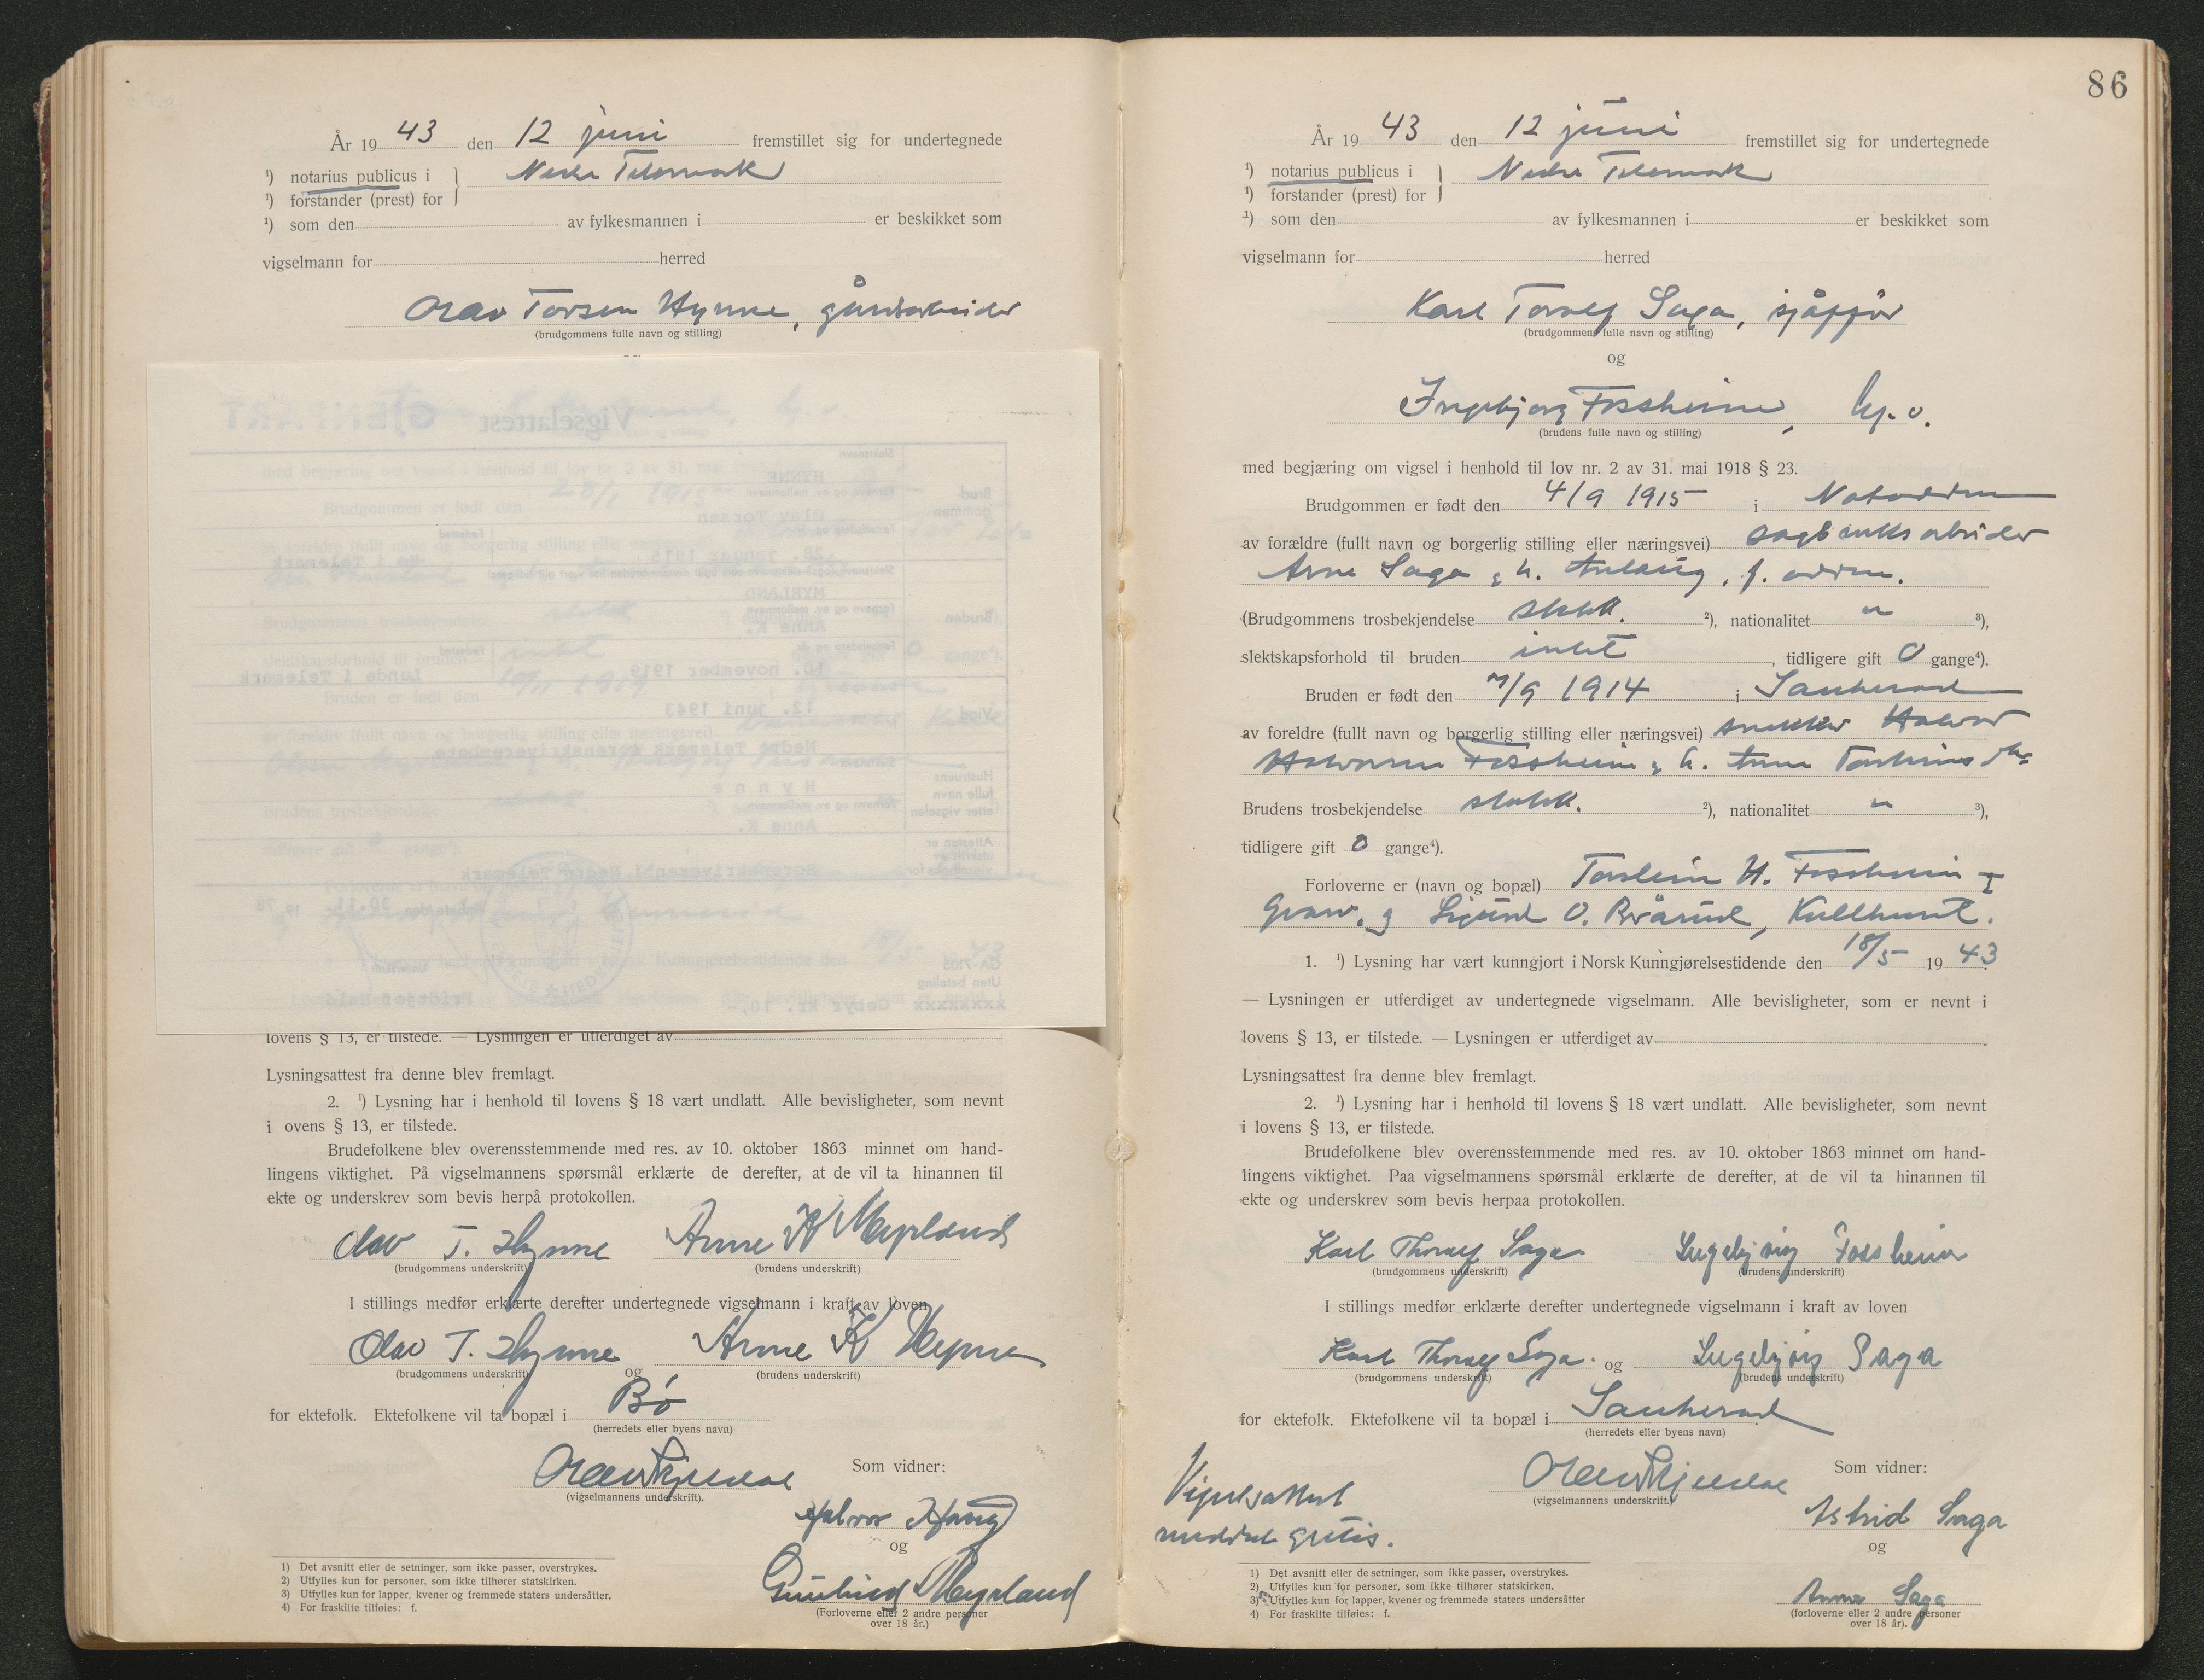 År 19 43 den 12 juni fremstillet sig for undertegnede
¹) notarius publicus i } Nedre Telemark
¹) forstander (prest) for
¹) som den av fylkesmannen i er beskikket som
vigselmann for herred
Olav Torsen Hynne, gårdsarbeider
(brudgommens fulle navn og stilling)
Vigselattest GJENPART
Slektsnavn
HYNNE
Brudgommen
Fornavn og ev. mellomnavn
Olav Torsen
28. januar 1915
Bø i Telemark
Bruden
MYRLAND
Anne K.
10. november 1919
Lunde i Telemark
Vigd
12. juni 1943
Nedre Telemark sorenskriverembete
Hustruens fulle navn etter vigselen
Hynne
Anne K.
Sorenskriveren i Nedre Telemark
30.11. 19 78
GA-7105
Uten betaling
xxxxxxxx Gebyr kr. 10,-
lovens § 13, er tilstede. — Lysningen er utferdiget av
Lysningsattest fra denne blev fremlagt.
2. ¹) Lysning har i henhold til lovens § 18 vært undlatt. Alle bevisligheter, som nevnt
i ovens § 13, er tilstede.
Brudefolkene blev overensstemmende med res. av 10. oktober 1863 minnet om hand-
lingens viktighet. På vigselmannens spørsmål erklærte de derefter, at de vil ta hinannen til
ekte og underskrev som bevis herpå protokollen.
Olav T. Hynne Anne K Myrland
(brudgommens underskrift) (brudens underskrift)
I stillings medfør erklærte derefter undertegnede vigselmann i kraft av loven
Olav T. Hynne og Anne K Hynne
(brudgommens underskrift) (brudens underskrift)
for ektefolk. Ektefolkene vil ta bopæl i Bø
(herredets eller byens navn)
Som vidner:
(vigselmannens underskrift).
Halvor Haug
og
Gunhild Myrland
(Forloverne eller 2 andre personer
over 18 år.)
1) Det avsnitt eller de setninger, som ikke passer, overstrykes.
2) Utfylles kun for personer, som ikke tilhører statskirken.
3) Utfylles kun for lapper, kvener og fremmede staters undersåtter.
4) For fraskilte tilføies: f.
86
År 19 43 den 12 juni fremstillet sig for undertegnede
¹) notarius publicus i } Nedre Telemark
¹) forstander (prest) for
¹) som den av fylkesmannen i er beskikket som
vigselmann for herred
Karl Toralf Saga, sjåffør
(brudgommens fulle navn og stilling)
og
Ingebjørg Fossheim,
(brudens fulle navn og stilling)
med begjæring om vigsel i henhold til lov nr. 2 av 31. mai 1918 § 23.
Brudgommen er født den 4/9 1915 i Notodden
av forældre (fullt navn og borgerlig stilling eller næringsvei) sagbruksarbeider
Arne Saga og h. Anlaug, f.
(Brudgommens trosbekjendelse statsk. ²), nationalitet n ³),
slektskapsforhold til bruden intet, tidligere gift 0 gange⁴).
Bruden er født den /9 1914 i Sauherad
av foreldre (fullt navn og borgerlig stilling eller næringsvei) snekker Halvor
Halvorsen Fossheim og h. Anne
Brudens trosbekjendelse statsk. ²), nationalitet n ³),
tidligere gift 0 gange⁴).
Forloverne er (navn og bopæl) Torstein H. Fossheim,
Gvarv. og Sigurd O. Kullhuset.
1. ¹) Lysning har vært kunngjort i Norsk Kunngjørelsestidende den 18/5 19 43
— Lysningen er utferdiget av undertegnede vigselmann. Alle bevisligheter, som er nevnt i
lovens § 13, er tilstede. — Lysningen er utferdiget av
Lysningsattest fra denne blev fremlagt.
2. ¹) Lysning har i henhold til lovens § 18 vært undlatt. Alle bevisligheter, som nevnt
i lovens § 13, er tilstede.
Brudefolkene blev overensstemmende med res. av 10. oktober 1863 minnet om hand-
lingens viktighet. Paa vigselmannens spørsmål erklærte de derefter, at de vil ta hinannen til
ekte og underskrev som bevis herpaa protokollen.
Karl Thoralf Saga Ingebjørg Fossheim
(brudgommens underskrift) (brudens underskrift)
I stillings medfør erklærte derefter undertegnede vigselmann i kraft av loven
Karl Thoralf Saga. og Ingebjørg Saga
(brudgommens underskrift) (brudens underskrift)
for ektefolk. Ektefolkene vil ta bopæl i Sauherad
(herredets eller byens navn)
Vigselsattest
meddelt gratis.
Som vidner:
(vigselmannens underskrift.)
Astrid Saga
og
Anna Saga
(forloverne eller 2 andre personer
over 18 år).
1) Det avsnitt eller de setninger, som ikke passer, overstrykes.
2) Utfylles kun for personer, som ikke tilhører statskirken.
3) Utfylles kun for lapper, kvener og fremmede staters undersåtter
4) For fraskilte tilføies: f.